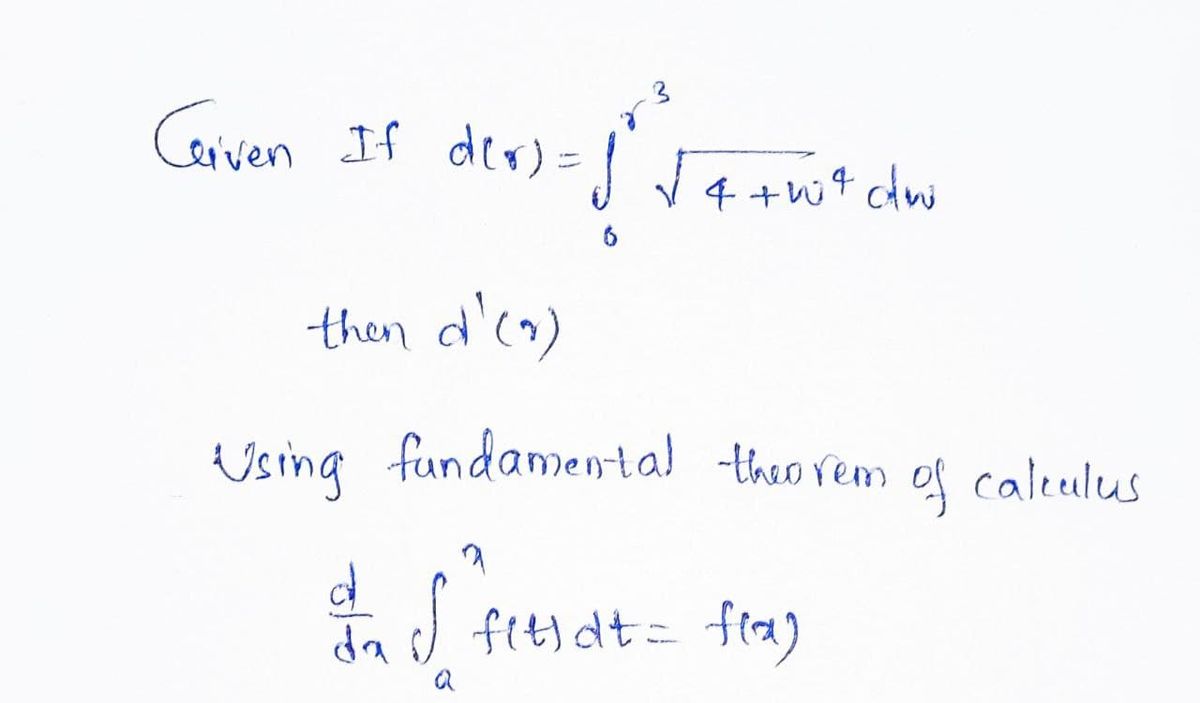 Given If d(r) = ∫₀^{r³} √(4 + w⁴) dw
then d'(r)
Using fundamental theorem of calculus
d/dx ∫ₐˣ f(t) dt = f(x)